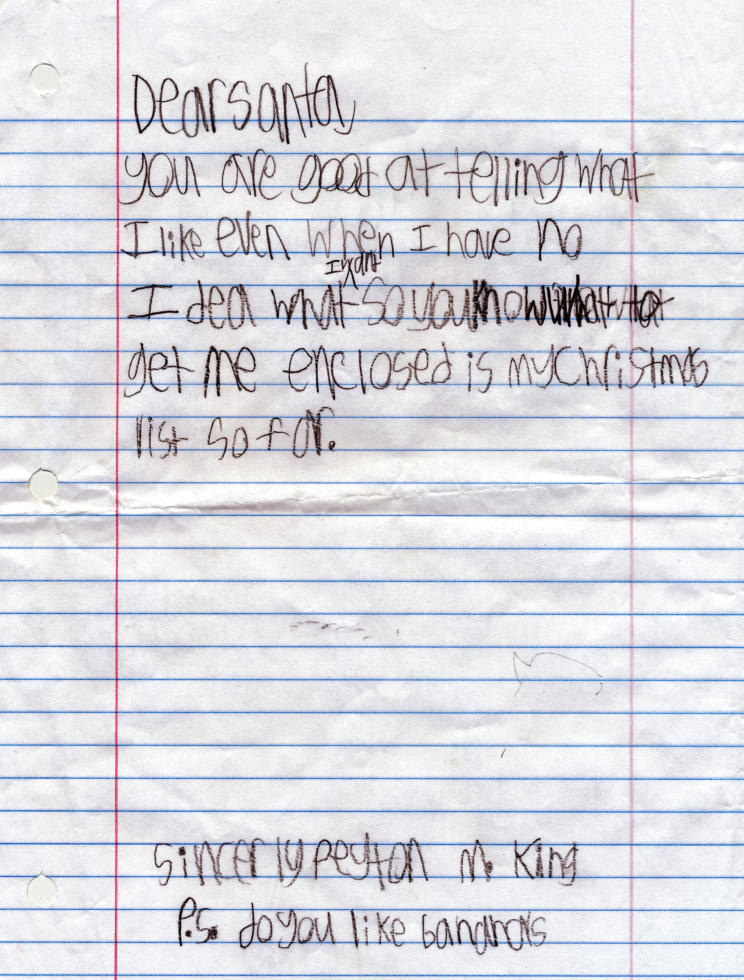 Dear santa
you are good at telling what
I like even when I have no
I want
I dea what so you know what to
get me enclosed is my christmas
list so far.
sincerly peyton m. King
P.S. do you like bananas